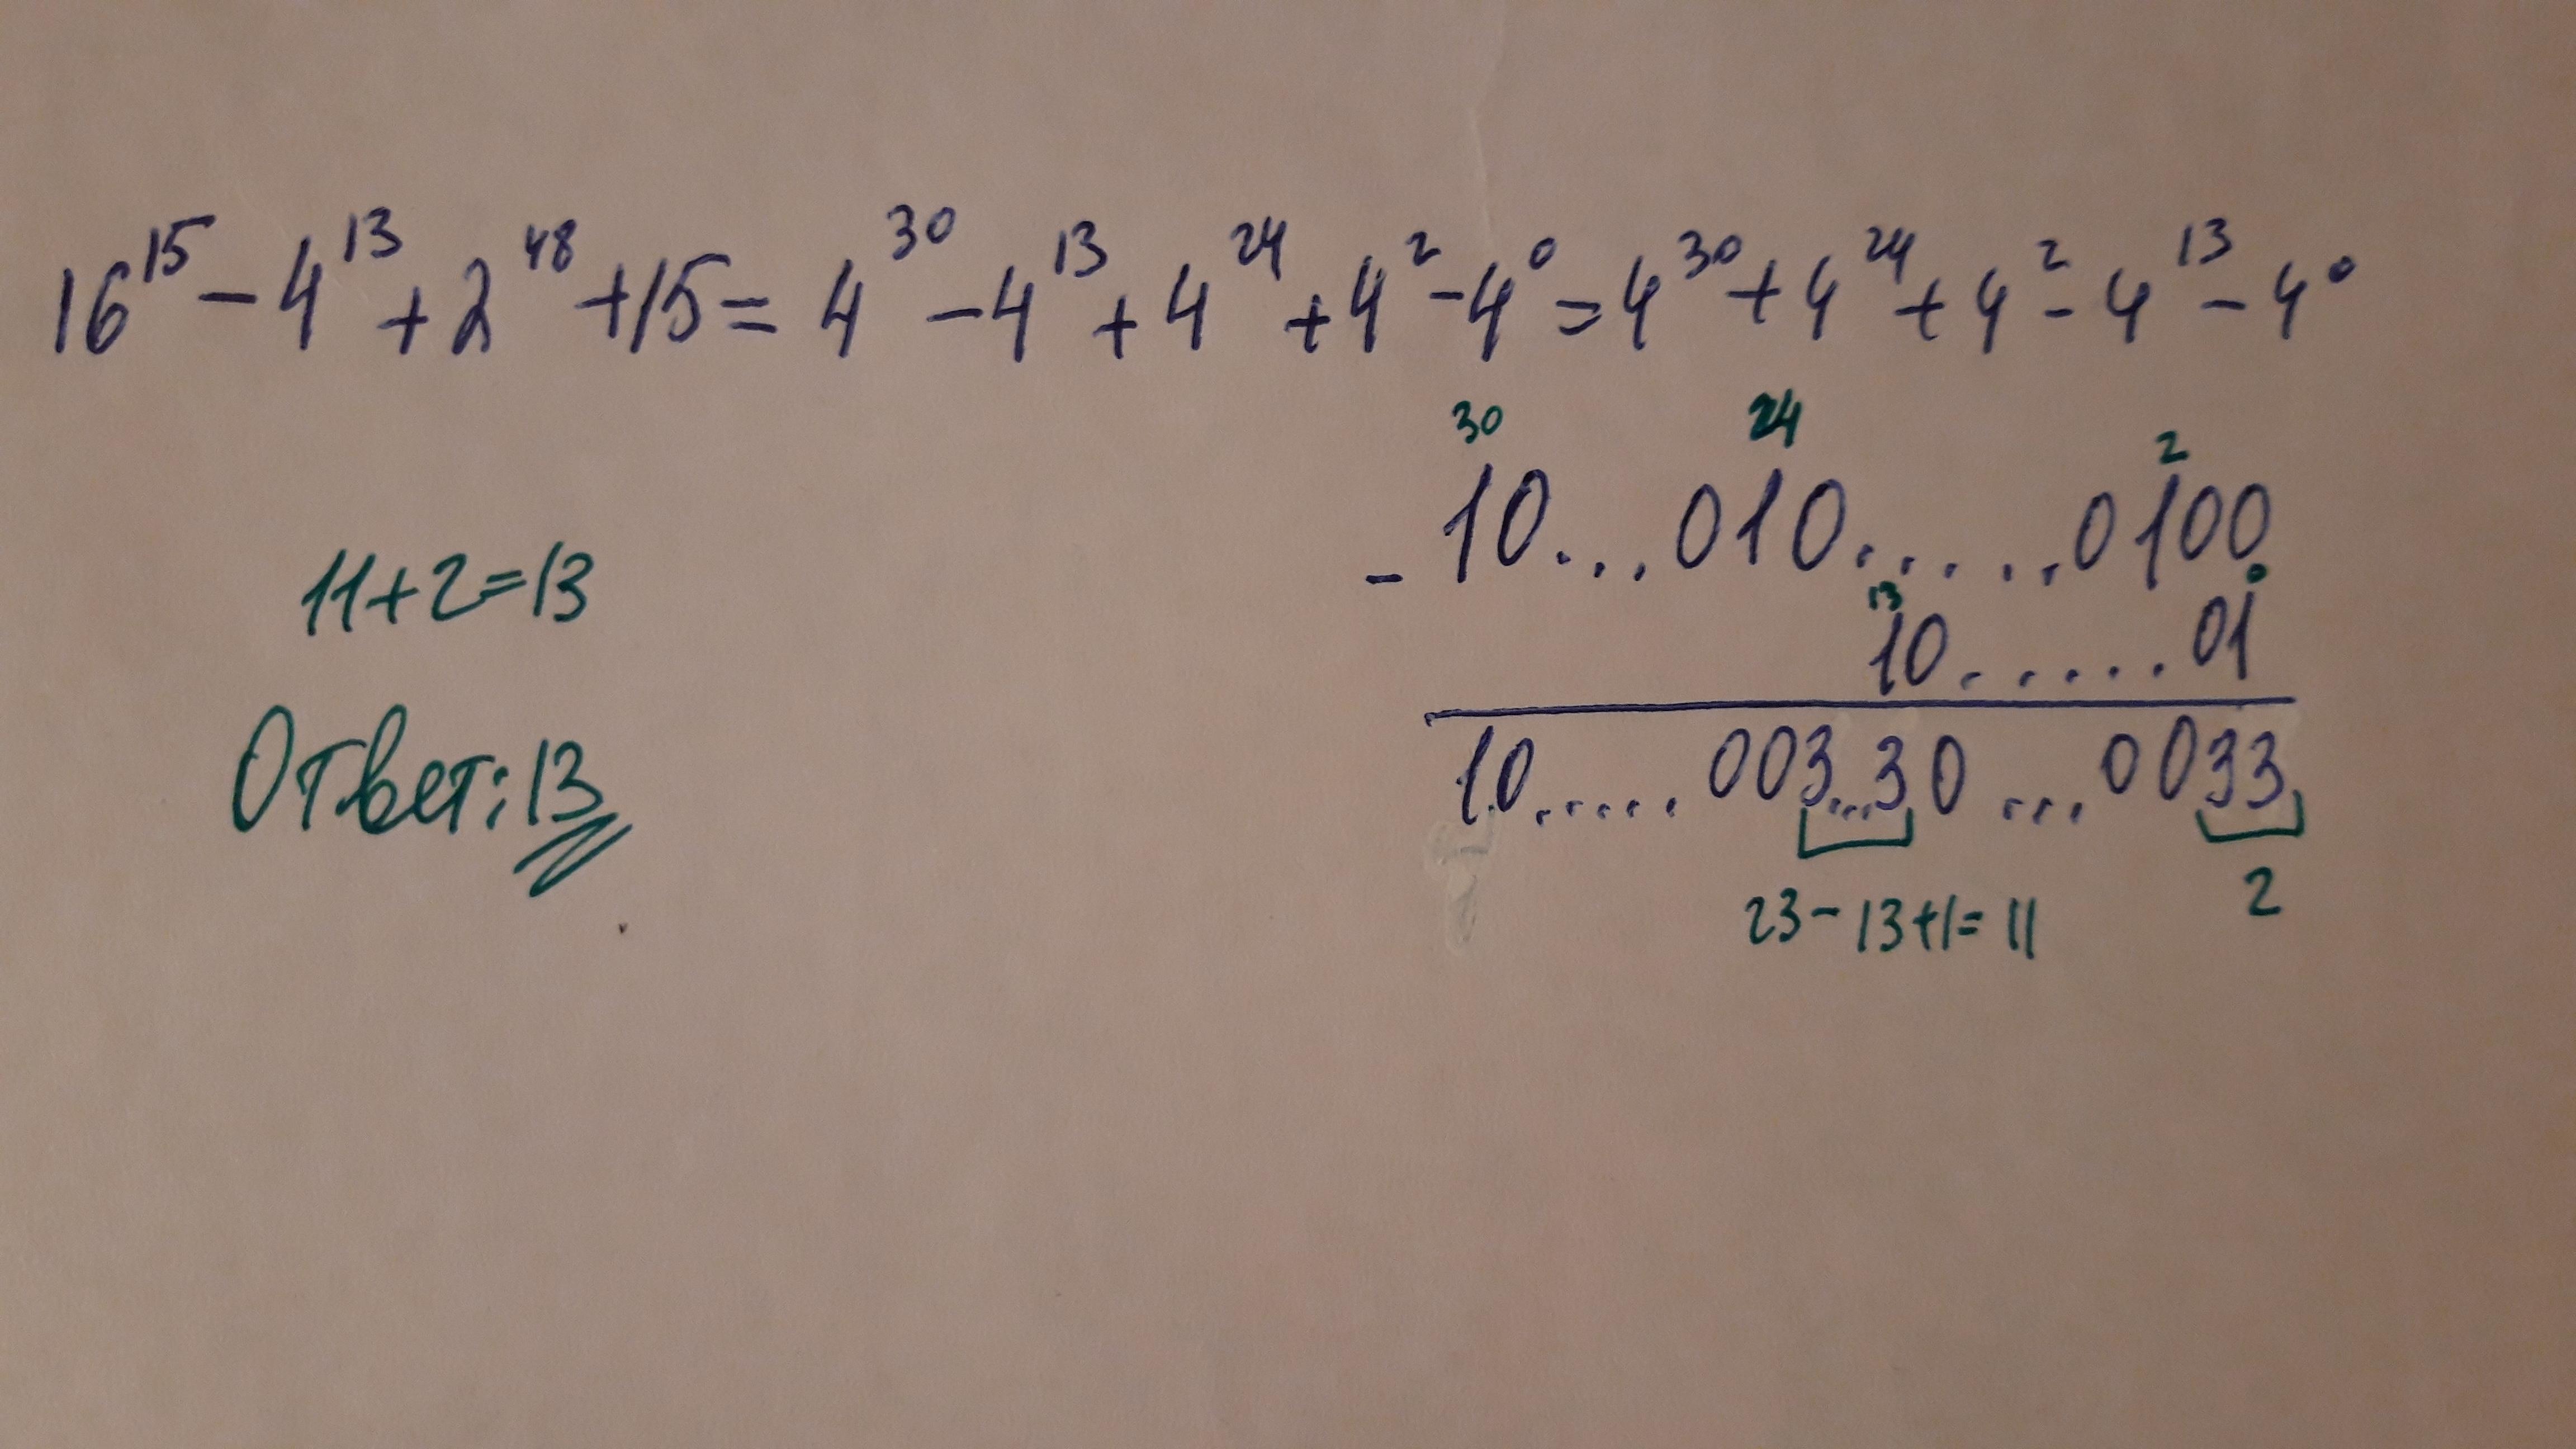 16¹⁵ - 4¹³ + 2⁴⁸ + 15 = 4³⁰ - 4¹³ + 4²⁴ + 4² - 4⁰ = 4³⁰ + 4²⁴ + 4² - 4¹³ - 4⁰
30 24 2
- 10...010......0100
13 0
10......01
10.....003...30...0033
23-13+1=11 2
11+2=13
Ответ: 13